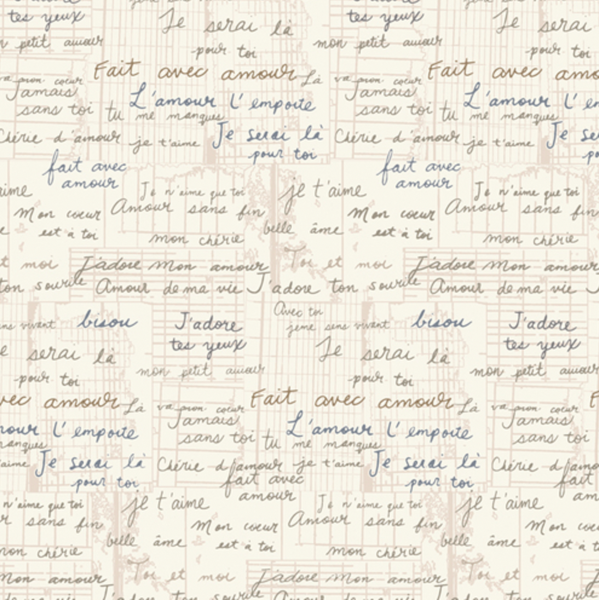 tes yeux Je serai là tes yeux Je serai
mon petit amour pour toi mon petit amour pour toi
Fait avec amour Là va mon cœur Fait avec
Jamais L'amour l'emporte Jamais L'amour
sans toi tu me manques sans toi tu me manques
Chérie d'amour je t'aime Je serai là Chérie d'amour je t'aime Je se
pour toi
fait avec fait avec
amour amour
aime Je n'aime que toi je t'aime Je n'aime que toi
Mon cœur Amour sans fin Mon cœur Amour sans fin
est à toi belle âme est à toi
mon chérie mon chérie
et moi J'adore mon amour Toi et moi J'adore mon amour
ton sourire Amour de ma vie J'adore ton sourire Amour de ma vie J
Avec toi
sens vivant bisou J'adore jeme sens vivant bisou J'adore
tes yeux tes yeux
serai là Je serai là
pour toi mon petit amour pour toi mon petit amour
avec amour Là va mon cœur Fait avec amour Là va mon cœur
Jamais Jamais
amour l'emporte sans toi L'amour l'emporte sans toi
manques tu me manques
aime Je serai là Chérie d'amour je t'aime Je serai là Chérie d'amour
pour toi fait avec pour toi fait avec
amour
n'aime que toi je t'aime Je n'aime que toi je t'aime
sans fin Mon cœur Amour sans fin Mon cœur
belle âme est à toi belle âme est à toi
mon chérie mon chérie
mon amour Toi et moi J'adore mon amour Toi et moi